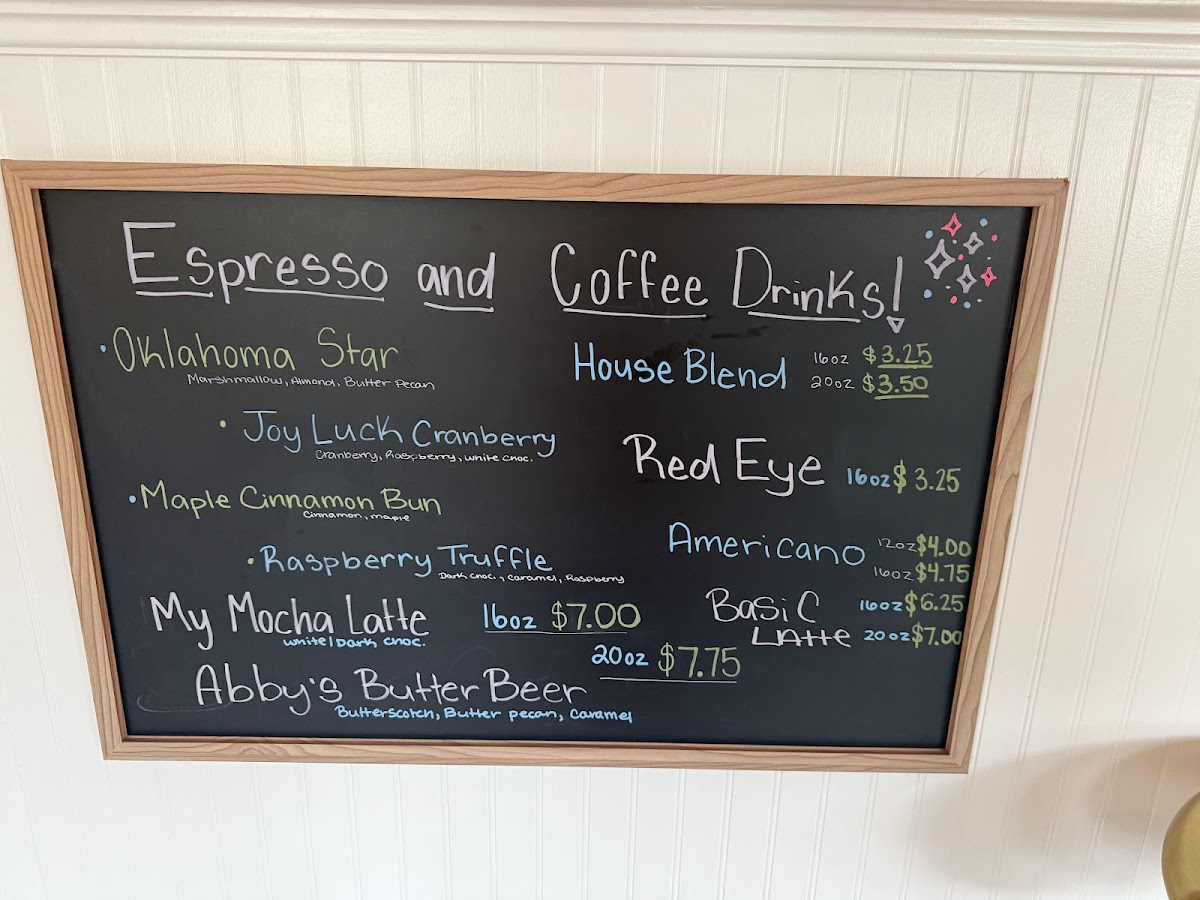 Espresso and Coffee Drinks!
• Oklahoma Star
Marshmallow, Almond, Butter Pecan
• Joy Luck Cranberry
Cranberry, Raspberry, white choc.
• Maple Cinnamon Bun
Cinnamon, maple
• Raspberry Truffle
Dark choc., caramel, Raspberry
My Mocha Latte
white/Dark choc.
16oz $7.00
20oz $7.75
Abby's Butter Beer
Butterscotch, Butter pecan, caramel
House Blend 16oz $3.25
20oz $3.50
Red Eye 16oz $3.25
Americano 12oz $4.00
16oz $4.75
Basic 16oz $6.25
Latte 20oz $7.00